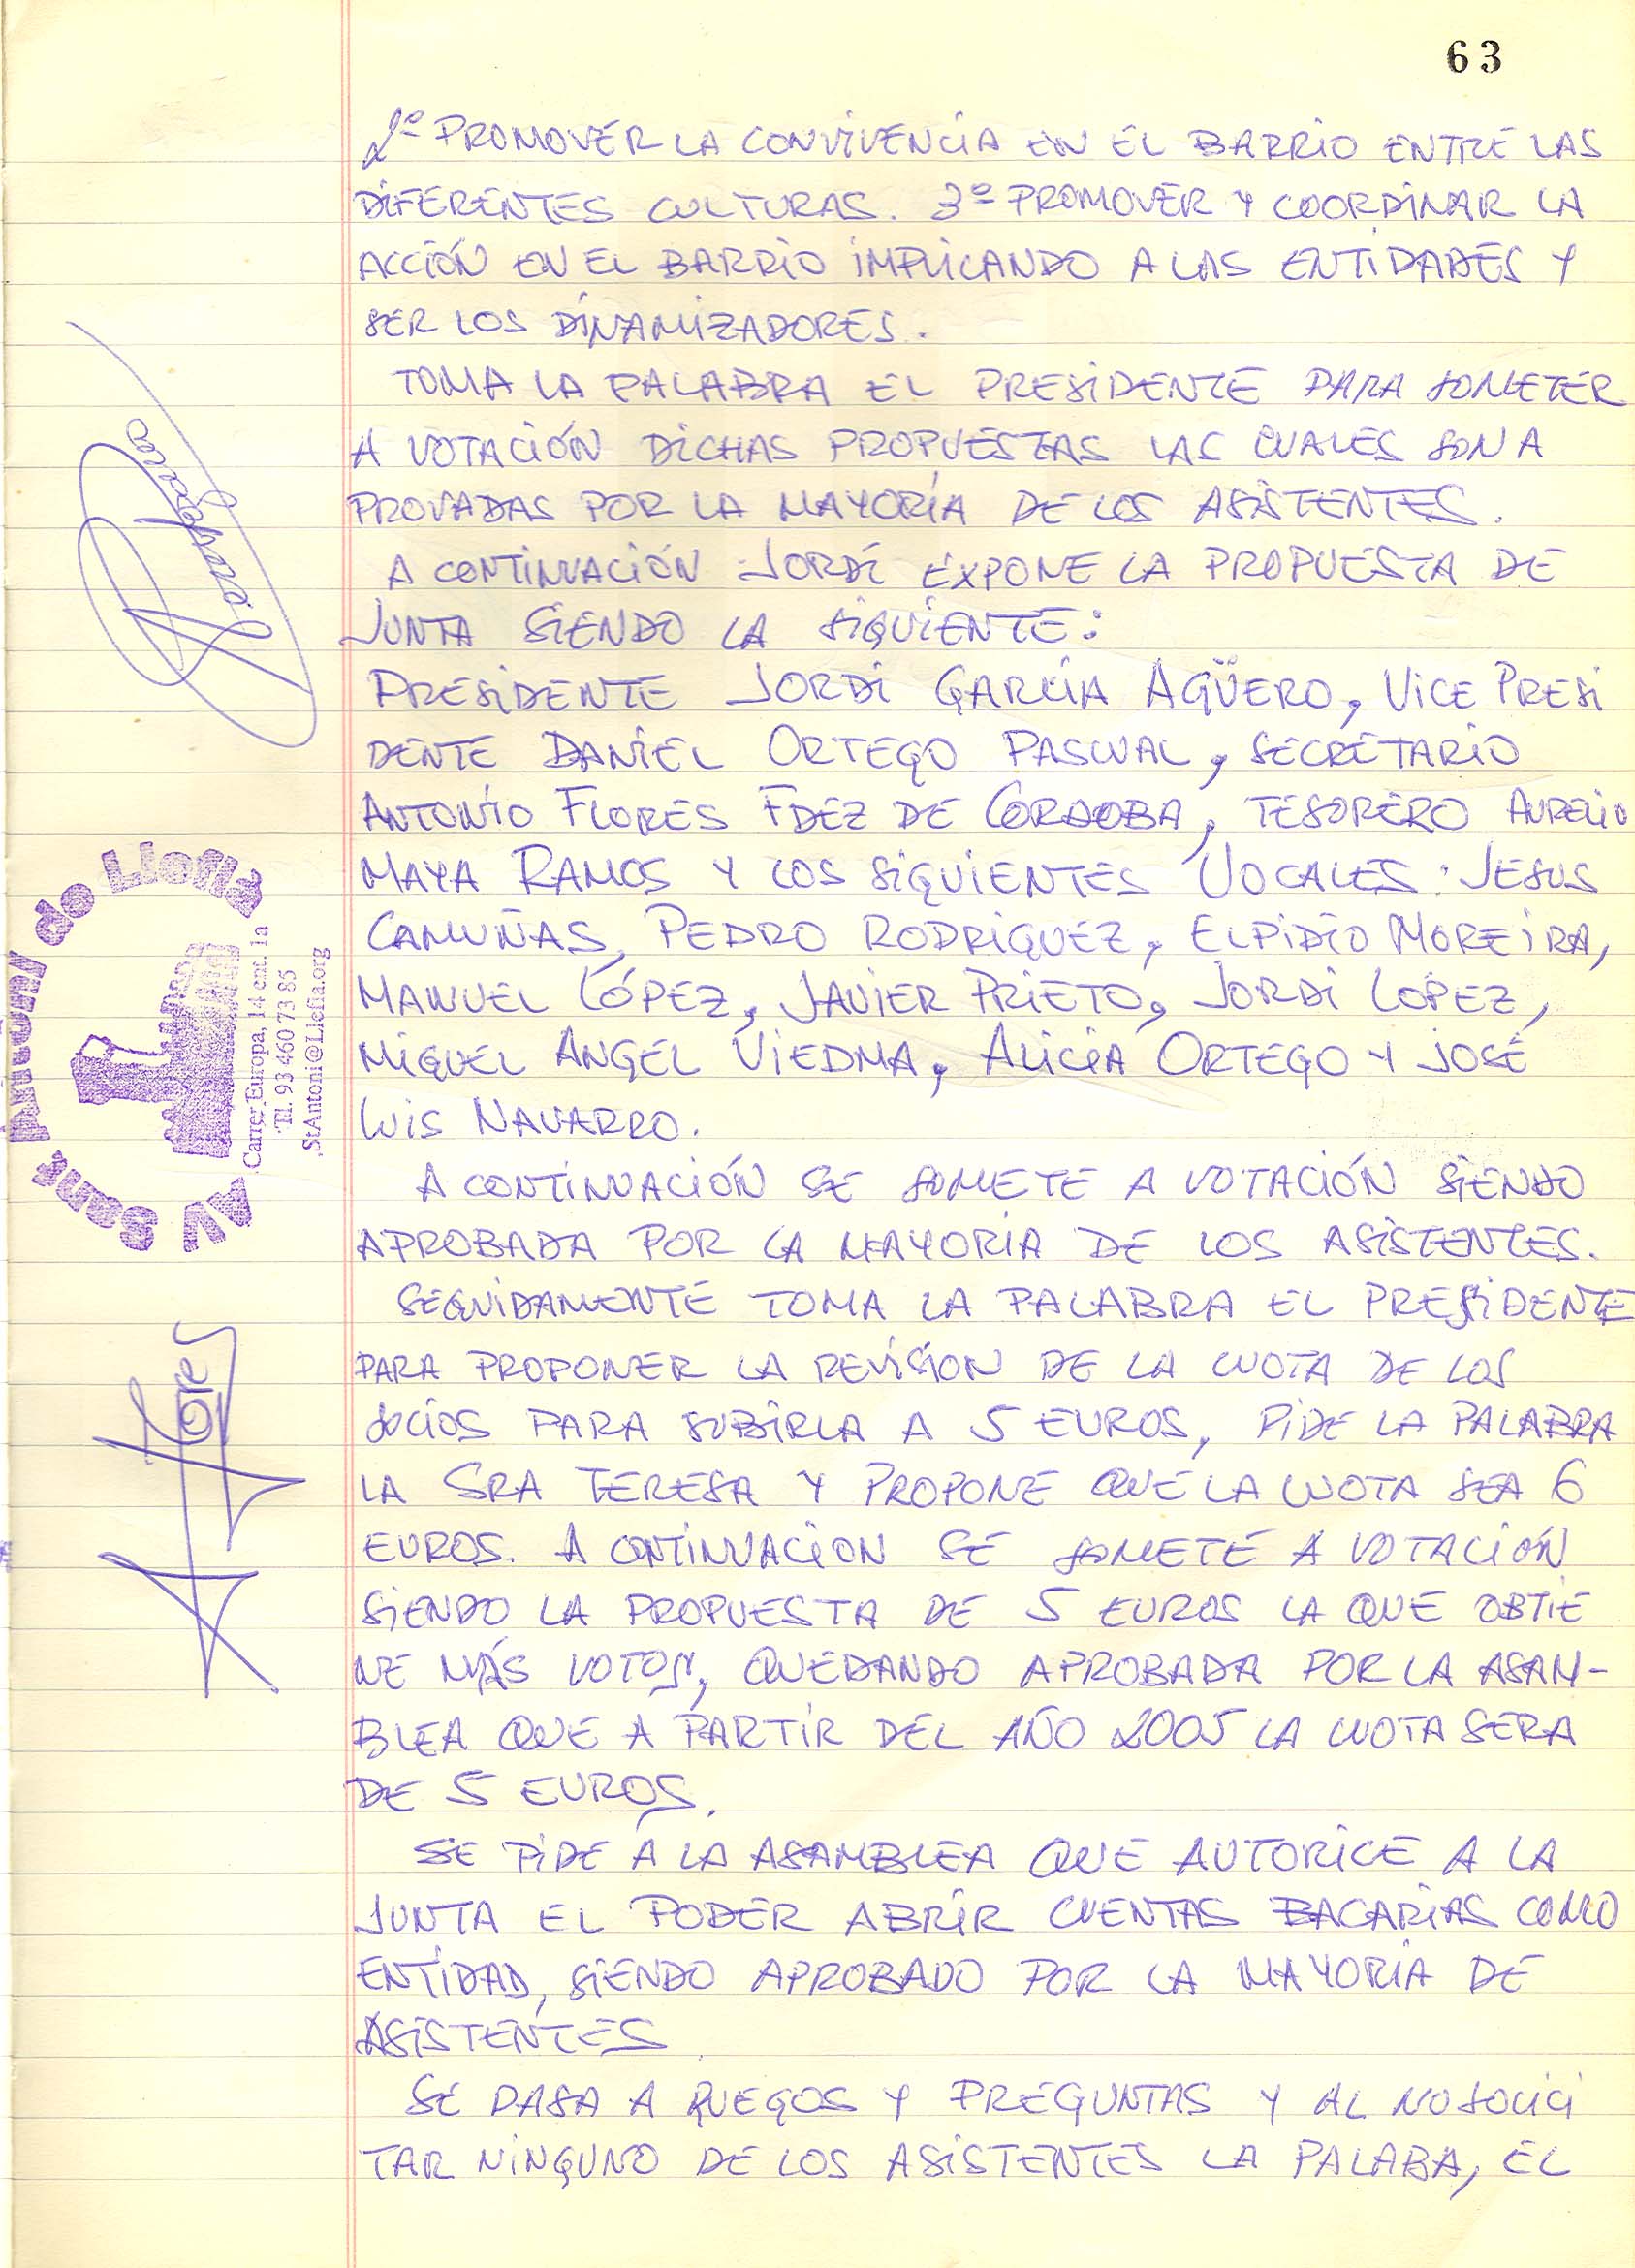 63
2º PROMOVER LA CONVIVENCIA EN EL BARRIO ENTRE LAS
DIFERENTES CULTURAS. 3º PROMOVER Y COORDINAR LA
ACCIÓN EN EL BARRIO IMPLICANDO A LAS ENTIDADES Y
SER LOS DINAMIZADORES.
TOMA LA PALABRA EL PRESIDENTE PARA SOMETER
A VOTACIÓN DICHAS PROPUESTAS LAS CUALES SON A
PROVADAS POR LA MAYORÍA DE LOS ASISTENTES.
A CONTINUACIÓN JORDI EXPONE LA PROPUESTA DE
JUNTA SIENDO LA SIGUIENTE:
PRESIDENTE JORDI GARCÍA AGÜERO, VICE PRESI
DENTE DANIEL ORTEGO PASCUAL, SECRETARIO
ANTONIO FLORES FDEZ DE CORDOBA, TESORERO AURELIO
MAYA RAMOS Y LOS SIGUIENTES VOCALES: JESUS
CAMUÑAS, PEDRO RODRIGUEZ, ELPIDIO MOREIRA,
MANUEL LÓPEZ, JAVIER PRIETO, JORDI LOPEZ,
MIGUEL ANGEL VIEDMA, ALICIA ORTEGO Y JOSÉ
LUIS NAVARRO.
A CONTINUACIÓN SE SOMETE A VOTACIÓN SIENDO
APROBADA POR LA MAYORIA DE LOS ASISTENTES.
SEGUIDAMENTE TOMA LA PALABRA EL PRESIDENTE
PARA PROPONER LA REVISION DE LA CUOTA DE LOS
SOCIOS PARA SUBIRLA A 5 EUROS, PIDE LA PALABRA
LA SRA TERESA Y PROPONE QUE LA CUOTA SEA 6
EUROS. A CONTINUACION SE SOMETE A VOTACIÓN
SIENDO LA PROPUESTA DE 5 EUROS LA QUE OBTIE
NE MÁS VOTOS, QUEDANDO APROBADA POR LA ASAM-
BLEA QUE A PARTIR DEL AÑO 2005 LA CUOTA SERA
DE 5 EUROS.
SE PIDE A LA ASAMBLEA QUE AUTORICE A LA
JUNTA EL PODER ABRIR CUENTAS BACARIAS COMO
ENTIDAD, SIENDO APROBADO POR LA MAYORIA DE
ASISTENTES
SE PASA A RUEGOS Y PREGUNTAS Y AL NO SOLICI
TAR NINGUNO DE LOS ASISTENTES LA PALABA, EL
AV Sant Antoni de Llefia
Carrer Europa, 14 ent. 1a
Tl. 93 460 73 85
StAntoni@Llefia.org
A Flores